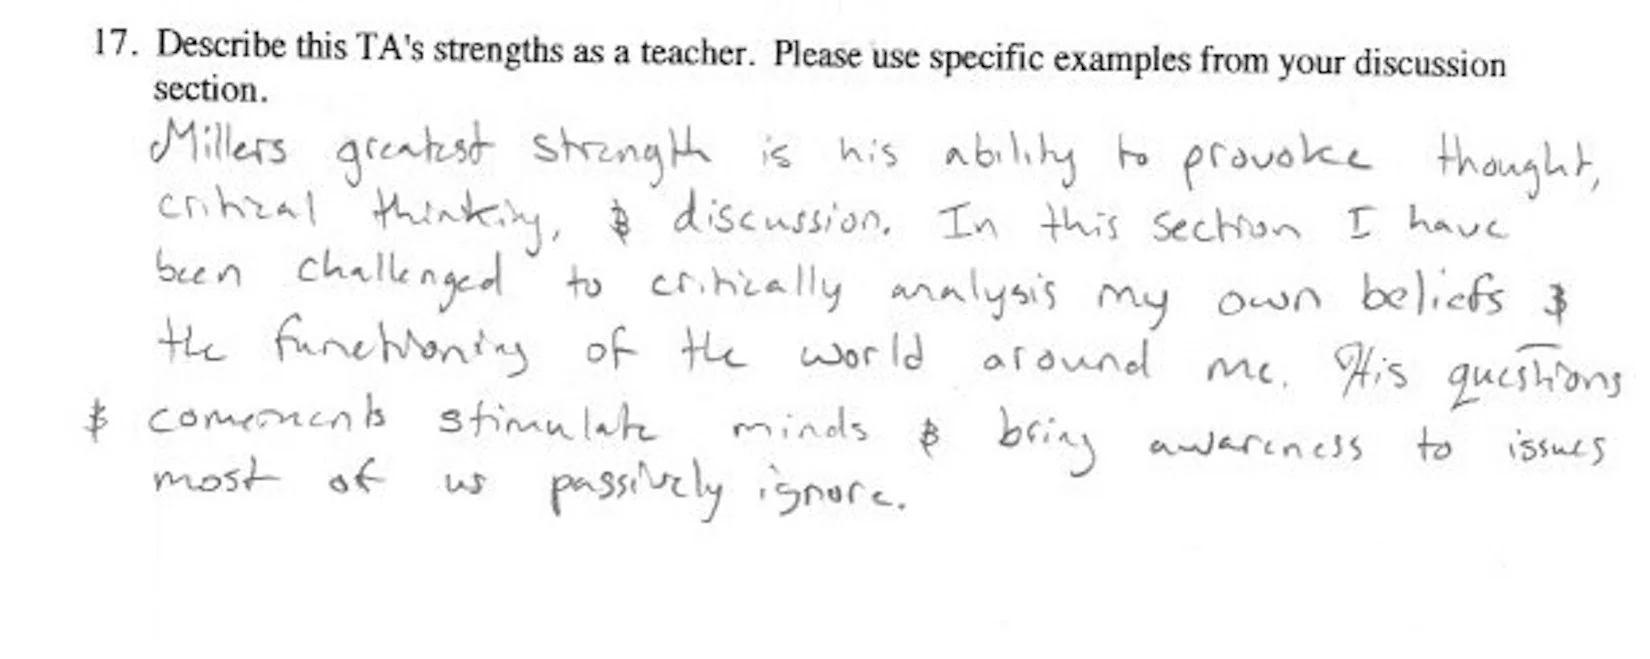 17. Describe this TA's strengths as a teacher. Please use specific examples from your discussion
section.
Millers greatest strength is his ability to provoke thought,
critical thinking, & discussion. In this section I have
been challenged to critically analysis my own beliefs &
the functioning of the world around me. His questions
& comements stimulate minds & bring awareness to issues
most of us passively ignore.